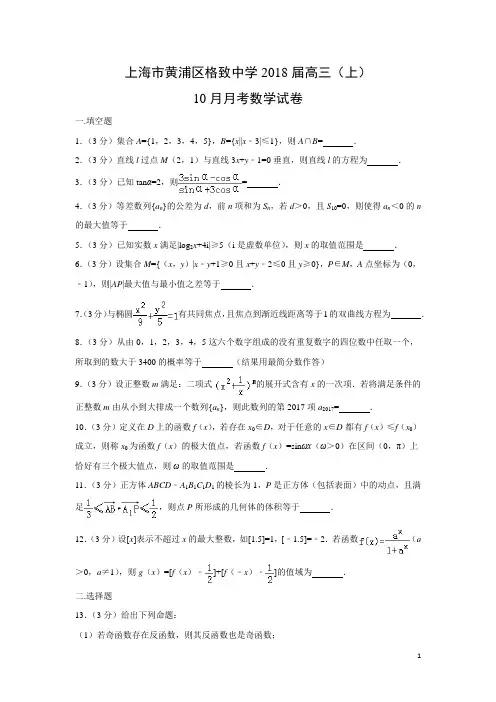 上海市黄浦区格致中学 2018 届高三（上）
10 月月考数学试卷
一.填空题
1.（3 分）集合 A={1，2，3，4，5}，B={x||x﹣3|≤1}，则 A∩B= ．
2.（3 分）直线 l 过点 M（2，1）与直线 3x+y﹣1=0 垂直，则直线 l 的方程为 ．
3.（3 分）已知 tanα=2，则(3sinα-cosα)/(sinα+3cosα)= ．
4.（3 分）等差数列{aₙ}的公差为 d，前 n 项和为 Sₙ，若 d＞0，且 S₁₀=0，则使得 aₙ＜0 的 n
的最大值等于 ．
5.（3 分）已知实数 x 满足|log₂x+4i|≥5（i 是虚数单位），则 x 的取值范围是 ．
6.（3 分）设集合 M={（x，y）|x﹣y+1≥0 且 x+y﹣2≤0 且 y≥0}，P∈M，A 点坐标为（0，
﹣1），则|AP|最大值与最小值之差等于 ．
7.（3 分）与椭圆x²/9+y²/5=1有共同焦点，且焦点到渐近线距离等于 1 的双曲线方程为 ．
8.（3 分）从由 0，1，2，3，4，5 这六个数字组成的没有重复数字的四位数中任取一个，
所取到的数大于 3400 的概率等于 （结果用最简分数作答）
9.（3 分）设正整数 m 满足：二项式(x²+1/x)ᵐ的展开式含有 x 的一次项．若将满足条件的
正整数 m 由从小到大排成一个数列{aₙ}，则此数列的第 2017 项 a₂₀₁₇= ．
10.（3 分）定义在 D 上的函数 f（x），若存在 x₀∈D，对于任意的 x∈D 都有 f（x）≤f（x₀）
成立，则称 x₀ 为函数 f（x）的极大值点，若函数 f（x）=sinωx（ω＞0）在区间（0，π）上
恰好有三个极大值点，则 ω 的取值范围是 ．
11.（3 分）正方体 ABCD﹣A₁B₁C₁D₁ 的棱长为 1，P 是正方体（包括表面）中的动点，且满
足1/3≤AB→·A₁P→≤1/2，则点 P 所形成的几何体的体积等于 ．
12.（3 分）设[x]表示不超过 x 的最大整数，如[1.5]=1，[﹣1.5]=﹣2．若函数f(x)=aˣ/(1+aˣ)（a
＞0，a≠1），则 g（x）=[f（x）﹣1/2]+[f（﹣x）﹣1/2]的值域为 ．
二.选择题
13.（3 分）给出下列命题：
（1）若奇函数存在反函数，则其反函数也是奇函数；
1